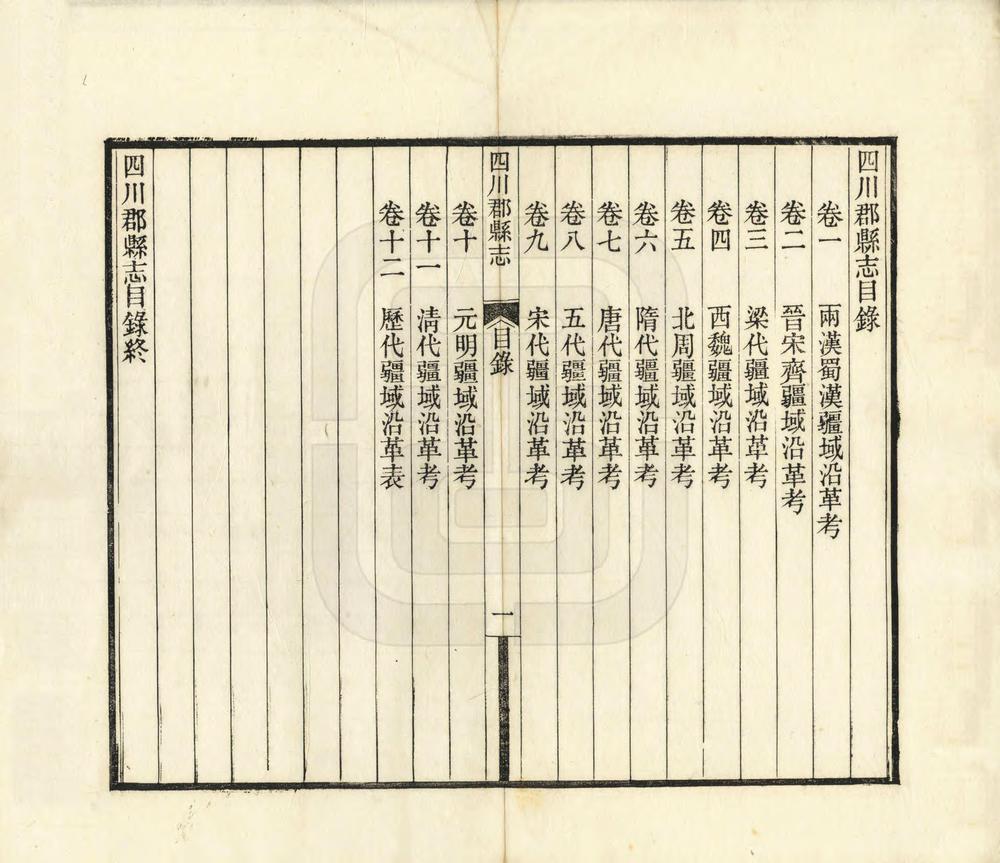 四川郡縣志目錄
卷一 兩漢蜀漢疆域沿革考
卷二 晉宋齊疆域沿革考
卷三 梁代疆域沿革考
卷四 西魏疆域沿革考
卷五 北周疆域沿革考
卷六 隋代疆域沿革考
卷七 唐代疆域沿革考
卷八 五代疆域沿革考
卷九 宋代疆域沿革考
四川郡縣志 目錄 一
卷十 元明疆域沿革考
卷十一 清代疆域沿革考
卷十二 歷代疆域沿革表
四川郡縣志目錄終